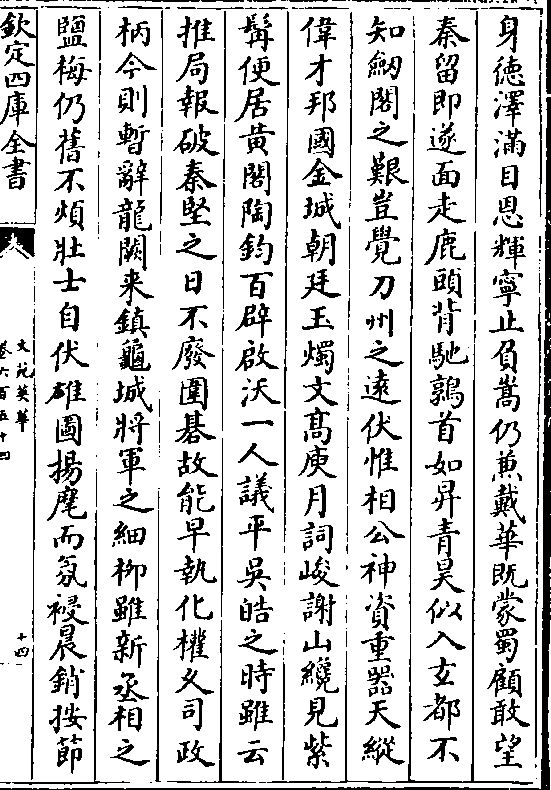 身德澤滿目恩輝寧止負嵩仍兼戴華既蒙蜀顧敢望
秦留即遂面走鹿頭背馳鶉首如昇青昊似入玄都不
知劒閣之艱豈覺刀州之遠伏惟相公神資重器天縱
偉才邦國金城朝廷玉燭文髙庾月詞峻謝山纔見紫
髯便居黄閣陶鈞百辟啟沃一人議平吳皓之時雖云
推局報破秦堅之日不廢圍碁故能早執化權乂司政
柄今則暫辭龍闕来鎮龜城將軍之細栁雖新丞相之
鹽梅仍舊不煩壯士自伏雄圖揚麾而氛祲晨銷按節
欽定四庫全書
文苑英華
卷六百五十四
十四